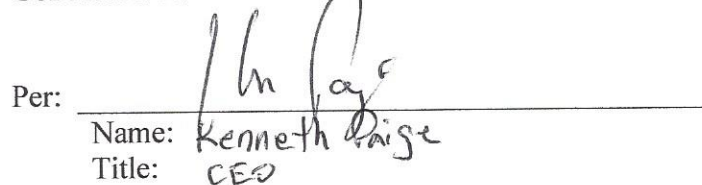 Per:
Name: Kenneth Paige
Title: CEO